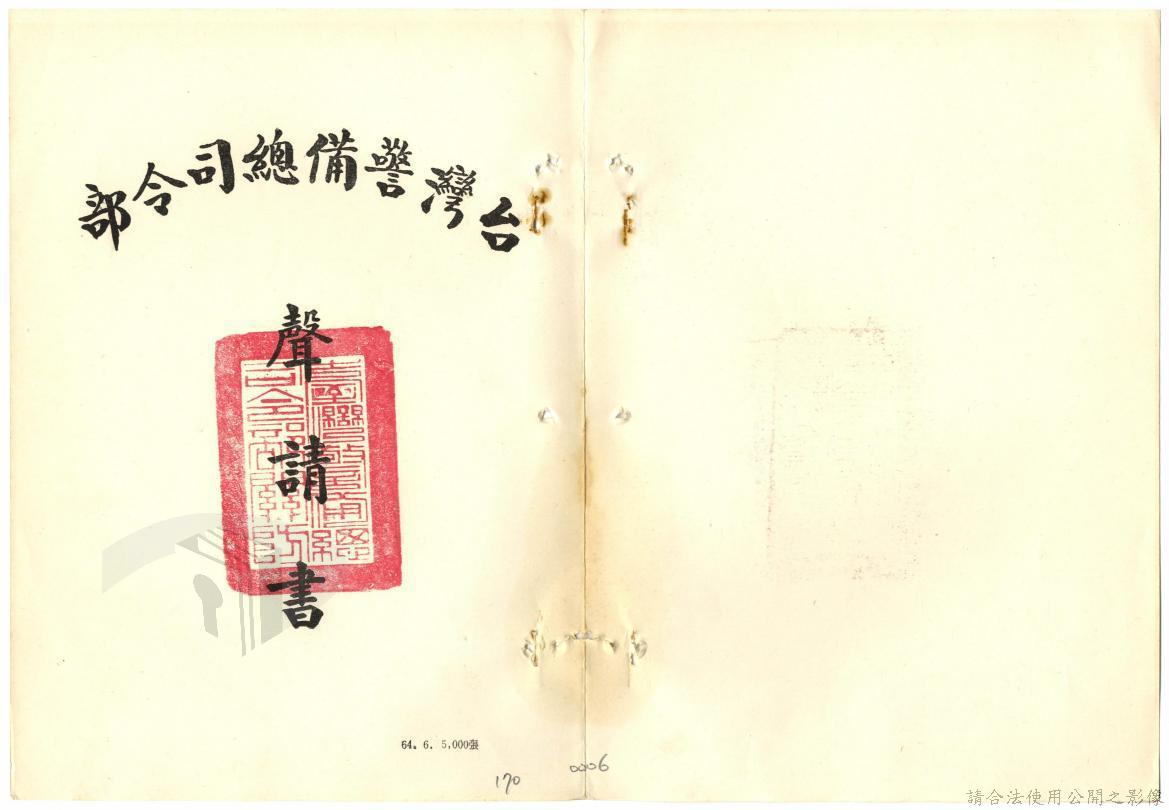 台灣警備總司令部
聲請書
臺灣警備總
司令部關防
64. 6. 5,000張
170
0006
請合法使用公開之影像